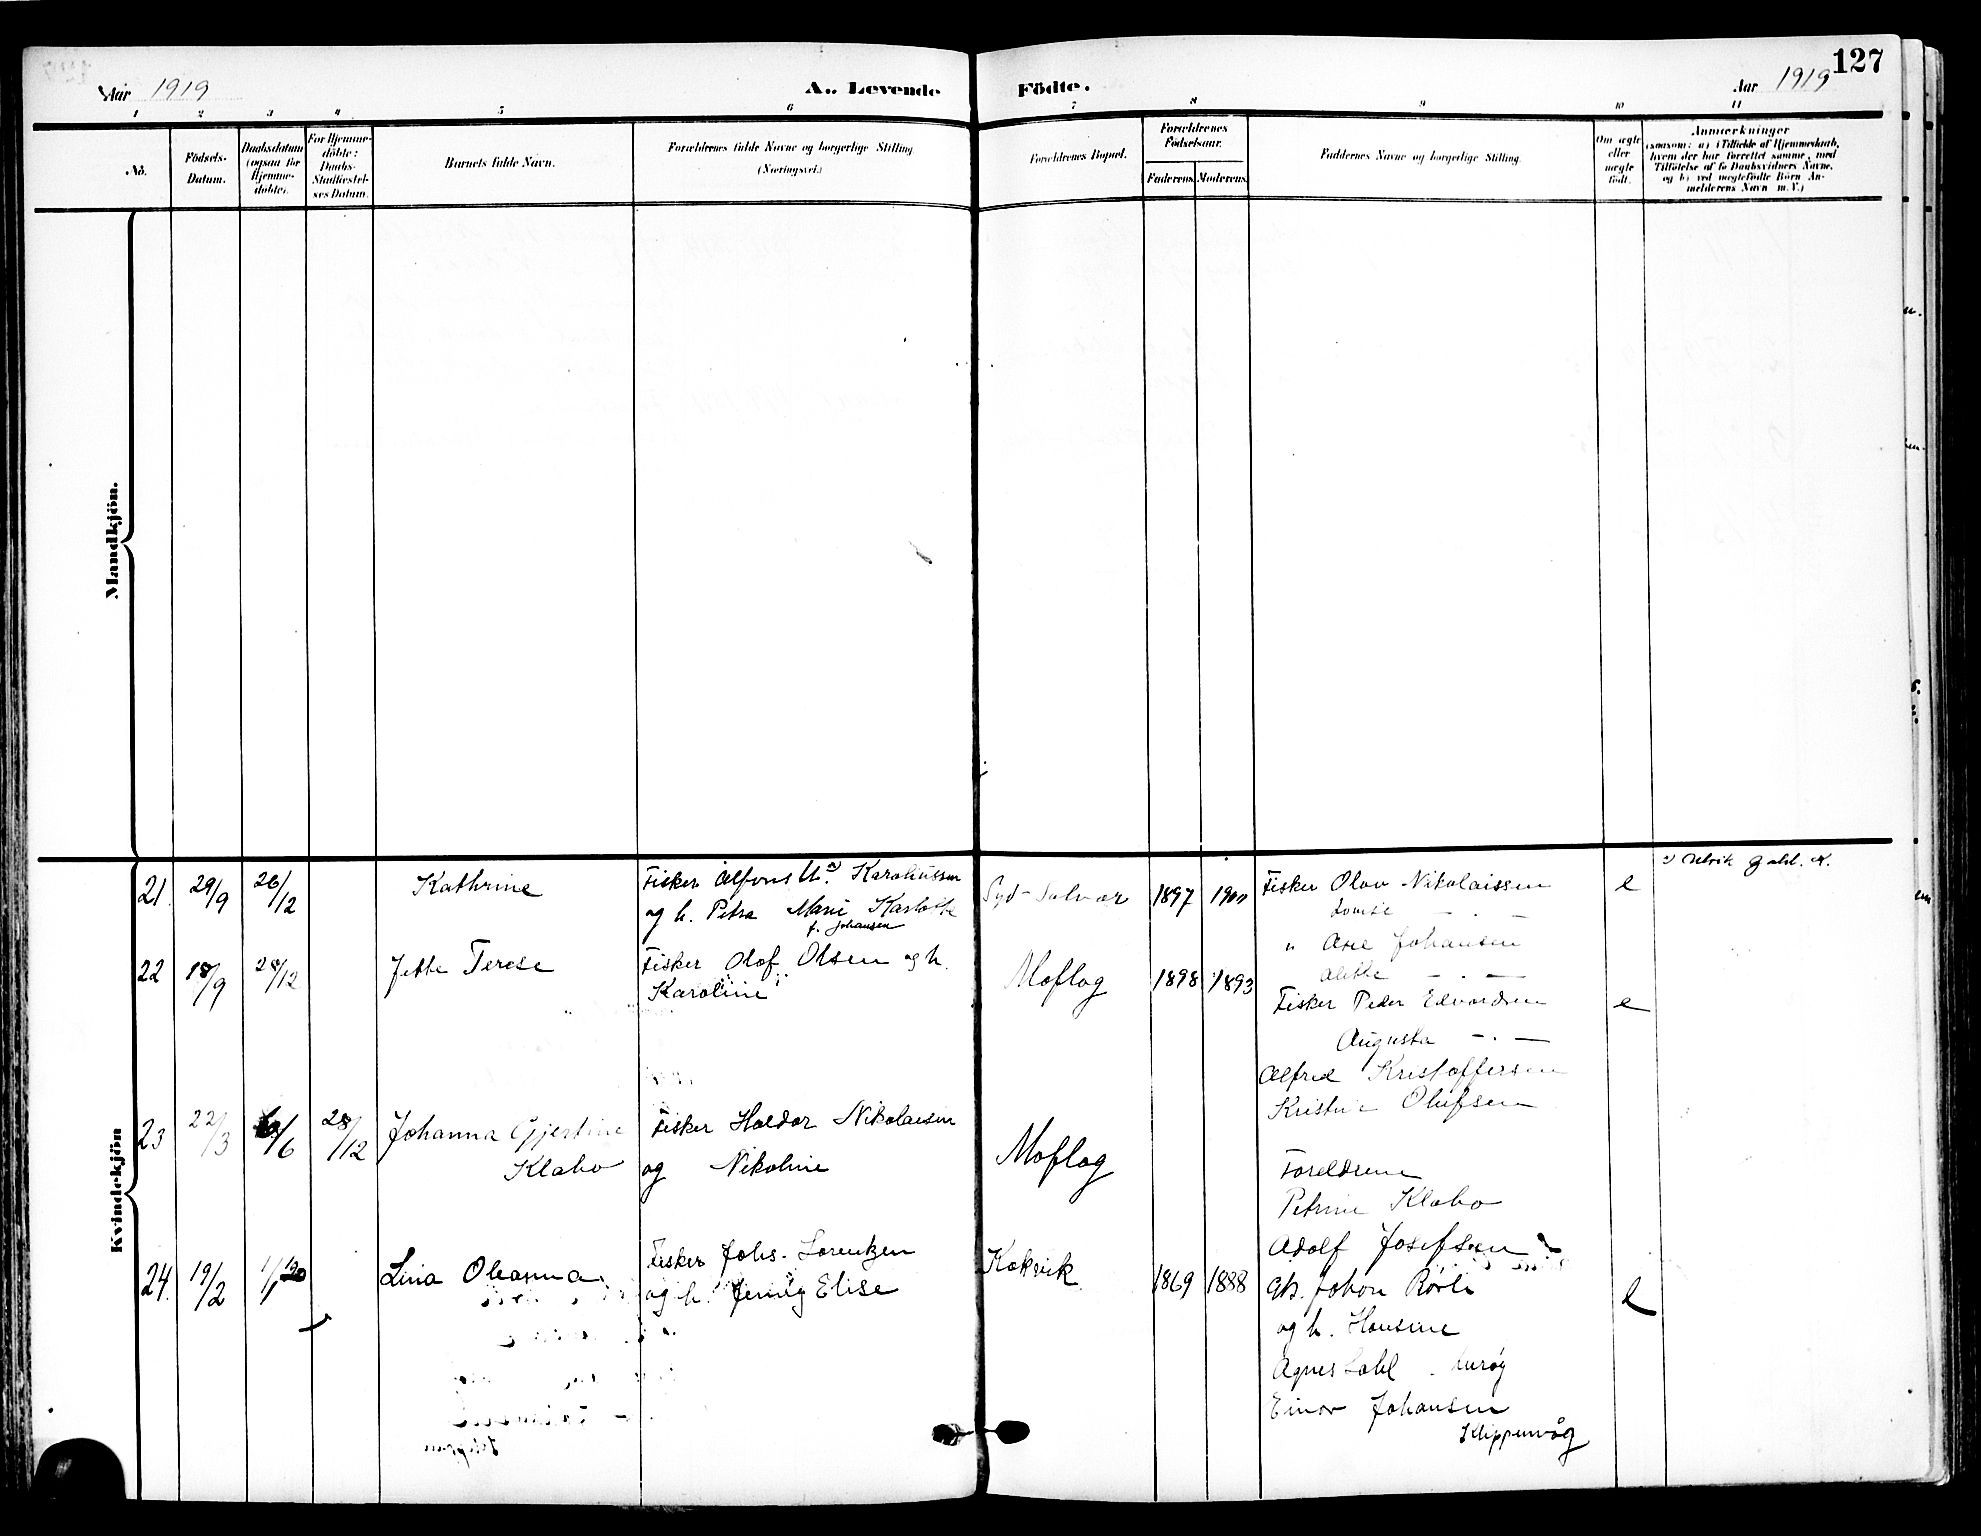 127
Aar 1919 A. Levende Födte. Aar 1919
1 2 3 4 5 6 7 8 9 10 11
No. Födsels-Datum. Daabsdatum (ogsaa for Hjemmedöbte). For Hjemmedöbte: Daabs-Stadfæstelses Datum. Barnets fulde Navn. Forældrenes fulde Navne og borgerlige Stilling (Næringsvei.) Forældrenes Bopæl. Forældrenes Födselsaar. Faderens. Moderens. Faddernes Navne og borgerlige Stilling. Om ægte eller uægte födt. Anmærkninger (saasom: a) i Tilfælde af Hjemmedaab, hvem der har forrettet samme, med Tilföielse af to Daabsvidners Navne, og b) ved uægtefödte Börn Anmelderens Navn m. V.)
Mandkjön.
Kvindekjön
21. 29/9 26/12 Kathrine Fisker Alfons Karoliussen
og h. Petra Marie Karlotte
f. Johansen
Syd-Solvær 1897 1900 Fisker Olav Nikolaissen e
Lovise — . —
" Are Johansen
Alette — . —
22 18/9 28/12 Jette Terese Fisker Olof Olsen og h.
Karoline
Moflag 1898 1893
Fisker Peder Edvardsen e
Augusta — . —
Alfred Kristoffersen
Kristine Olufsen
23 22/3 /6 28/12 Johanna Gjertine
Klabo
Fisker Haldor Nikolaisen
og Nikoline
Moflag
Foreldrene
Petrine Klabo
Adolf Josefsen
24. 19/2 1/1 20 Lina Oleanna Fisker Johs. Lorentzen
og h. Jenny Elise
Kokvik 1869 1888 Gb. Johan Rørli e
og h. Hansine
Agnes Dahl
Einar Johansen
Klippenvåg